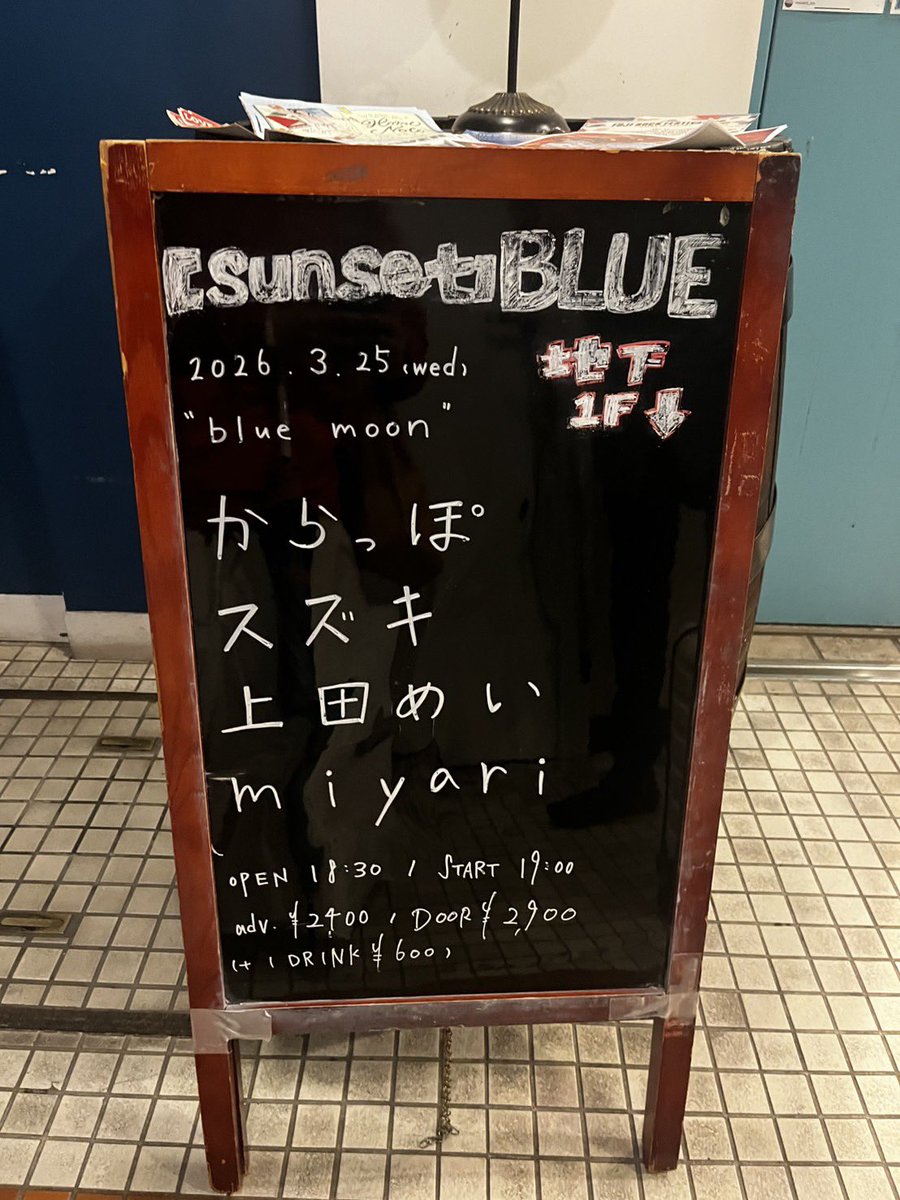 [sunset]BLUE
2026.3.25(wed)
地下
1F ↓
"blue moon"
からっぽ
スズキ
上田めい
miyari
OPEN 18:30 / START 19:00
adv. ¥2,400 / DOOR ¥2,900
(+ 1 DRINK ¥600)